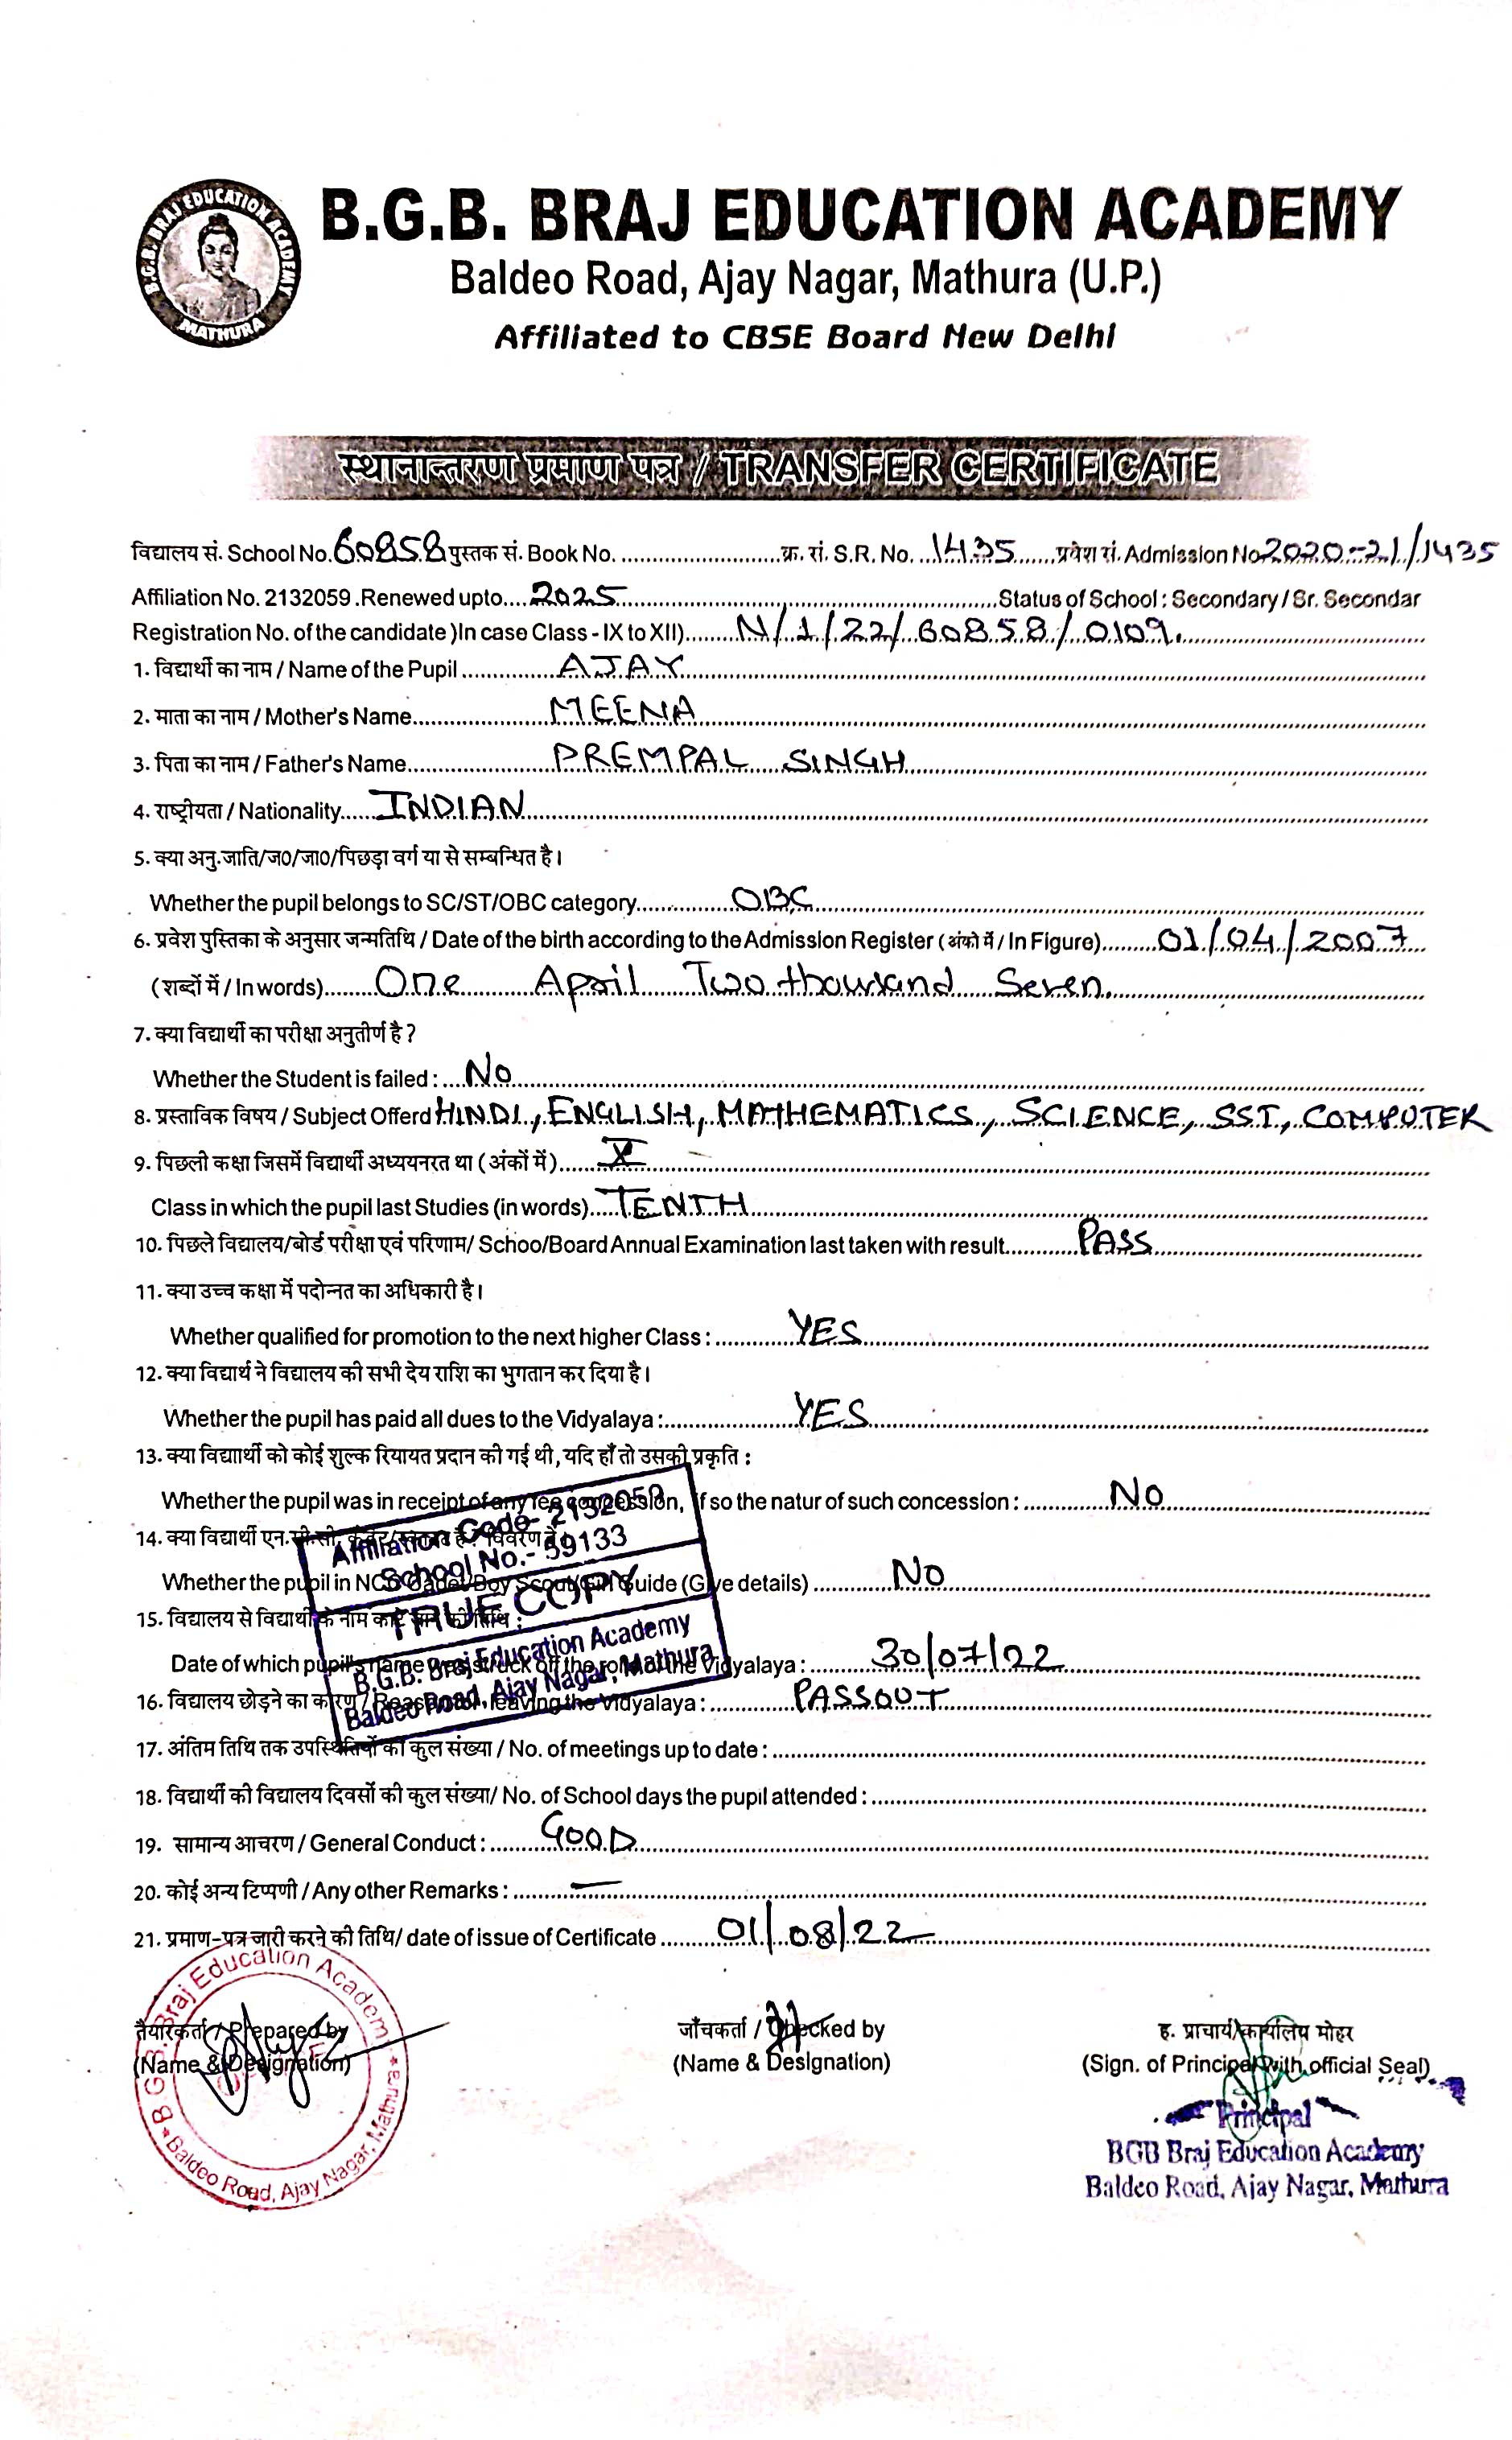 B.G.B. BRAJ EDUCATION ACADEMY
MATHURA
B.G.B. BRAJ EDUCATION ACADEMY
Baldeo Road, Ajay Nagar, Mathura (U.P.)
Affiliated to CBSE Board New Delhi
स्थानान्तरण प्रमाण पत्र / TRANSFER CERTIFICATE
विद्यालय सं. School No. 60858 पुस्तक सं. Book No. ........................ क्र. सं. S.R. No. 1435 प्रवेश सं. Admission No 2020-21/1435
Affiliation No. 2132059 .Renewed upto.... 2025 ........................ Status of School : Secondary / Sr. Secondar
Registration No. of the candidate )In case Class - IX to XII)........ N/1/22/60858/0109.
1. विद्यार्थी का नाम / Name of the Pupil ............... AJAY
2. माता का नाम / Mother's Name..................... MEENA
3. पिता का नाम / Father's Name..................... PREMPAL SINGH
4. राष्ट्रीयता / Nationality...... INDIAN
5. क्या अनु.जाति/ज0/जा0/पिछड़ा वर्ग या से सम्बन्धित है।
Whether the pupil belongs to SC/ST/OBC category............... OBC
6. प्रवेश पुस्तिका के अनुसार जन्मतिथि / Date of the birth according to the Admission Register ( अंको में / In Figure)......... 01/04/2007
( शब्दों में / In words)........ One April Two thousand Seven.
7. क्या विद्यार्थी का परीक्षा अनुतीर्ण है ?
Whether the Student is failed : .... No
8. प्रस्ताविक विषय / Subject Offerd HINDI, ENGLISH, MATHEMATICS, SCIENCE, SST, COMPUTER
9. पिछली कक्षा जिसमें विद्यार्थी अध्ययनरत था ( अंकों में )...... X
Class in which the pupil last Studies (in words)..... TENTH
10. पिछले विद्यालय/बोर्ड परीक्षा एवं परिणाम/ Schoo/Board Annual Examination last taken with result............ PASS
11. क्या उच्च कक्षा में पदोन्नत का अधिकारी है।
Whether qualified for promotion to the next higher Class : ............ YES
12. क्या विद्यार्थ ने विद्यालय की सभी देय राशि का भुगतान कर दिया है।
Whether the pupil has paid all dues to the Vidyalaya :.................... YES
13. क्या विद्याार्थी को कोई शुल्क रियायत प्रदान की गई थी, यदि हाँ तो उसकी प्रकृति :
Whether the pupil was in receipt of any fee concession, if so the natur of such concession : ............... No
14. क्या विद्यार्थी एन.सी.सी.
Whether the pupil in NCC Cadet/Boy Scout/Girl Guide (Give details) ............. No
15. विद्यालय से विद्यार्थी के नाम काटे जाने की तिथि :
Date of which pupil's name was struck off the rolls of the Vidyalaya : ........... 30/07/22
16. विद्यालय छोड़ने का कारण / Reason for leaving the Vidyalaya : ............... PASSOUT
Affiliation Code- 2132059
School No.- 59133
TRUE COPY
B.G.B. Braj Education Academy
Baldeo Road, Ajay Nagar, Mathura
17. अंतिम तिथि तक उपस्थितियों की कुल संख्या / No. of meetings up to date :
18. विद्यार्थी की विद्यालय दिवसों की कुल संख्या/ No. of School days the pupil attended :
19. सामान्य आचरण / General Conduct : ......... GOOD
20. कोई अन्य टिप्पणी / Any other Remarks : .......... —
21. प्रमाण-पत्र जारी करने की तिथि/ date of issue of Certificate .......... 01/08/22
B.G.B. Braj Education Academy
Baldeo Road, Ajay Nagar, Mathura
तैयारकर्ता / Prepared by
(Name & Designation)
जाँचकर्ता / Checked by
(Name & Designation)
ह. प्राचार्य/कार्यालय मोहर
(Sign. of Principal with official Seal)
Principal
BGB Braj Education Academy
Baldeo Road, Ajay Nagar, Mathura